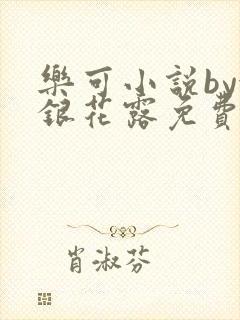 樂可小説by
銀花露免費
肖淑芬